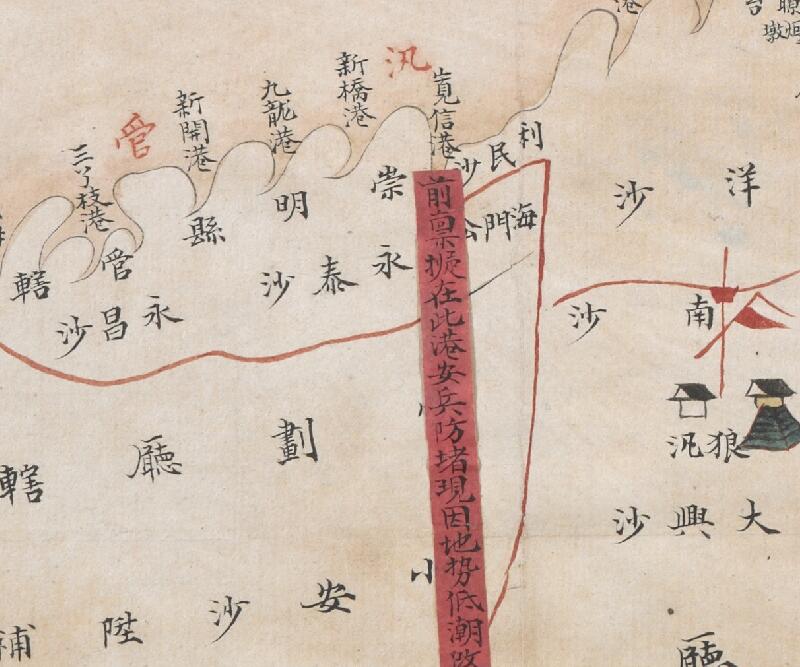 汛
管
新橋港
九龍港
新開港
三丫枝港
信港
利民沙
海門
崇明縣
管轄
永泰沙
永昌沙
前稟擬在此港安兵防堵現因地势低潮
洋沙
南沙
狼汛
大興沙
劃廳轄
小安沙
陞
廳